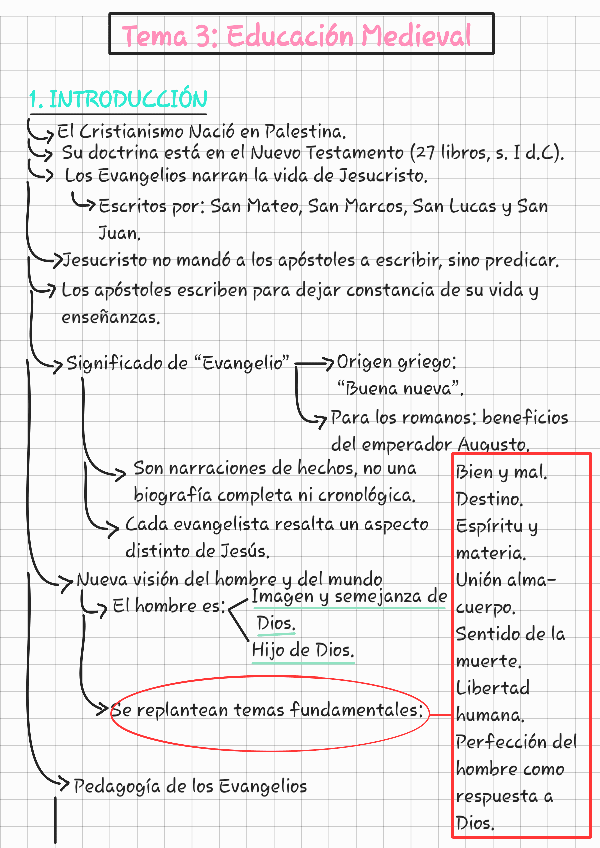 Tema 3: Educación Medieval
1. INTRODUCCIÓN
El Cristianismo Nació en Palestina.
Su doctrina está en el Nuevo Testamento (27 libros, s. I d.C).
Los Evangelios narran la vida de Jesucristo.
Escritos por: San Mateo, San Marcos, San Lucas y San
Juan.
Jesucristo no mandó a los apóstoles a escribir, sino predicar.
Los apóstoles escriben para dejar constancia de su vida y
enseñanzas.
Significado de “Evangelio”
Origen griego:
“Buena nueva”.
Para los romanos: beneficios
del emperador Augusto.
Son narraciones de hechos, no una
biografía completa ni cronológica.
Cada evangelista resalta un aspecto
distinto de Jesús.
Nueva visión del hombre y del mundo
El hombre es:
Imagen y semejanza de
Dios.
Hijo de Dios.
Se replantean temas fundamentales:
Bien y mal.
Destino.
Espíritu y
materia.
Unión alma-
cuerpo.
Sentido de la
muerte.
Libertad
humana.
Perfección del
hombre como
respuesta a
Dios.
Pedagogía de los Evangelios